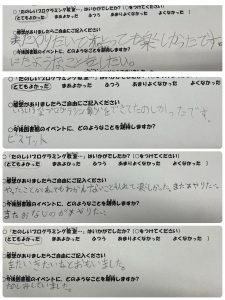 ○「たのしいプログラミング教室…」はいかがでしたか?(○をつけてください)
とてもよかった まあまあよかった ふつう あまりよくなかった よくなかった
○感想がありましたらご自由にご記入ください
とっても楽しかったです。
にたようなことをしたい。
○「たのしいプログラミング教室…」はいかがでしたか?(○をつけてください)
とてもよかった まあまあよかった ふつう あまりよくなかった よくなかった
○感想がありましたらご自由にご記入ください
いろいろなプログラミング たのしかったです。
○今後図書館のイベントに、どのようなことを期待しますか?
ビスケット
○「たのしいプログラミング教室…」はいかがでしたか?(○をつけてください)
とてもよかった まあまあよかった ふつう あまりよくなかった よくなかった
○感想がありましたらご自由にご記入ください
やったことが 楽しかった。またやりたい。
○今後図書館のイベントに、どのようなことを期待しますか?
またおなじのがやりたい。
○「たのしいプログラミング教室…」はいかがでしたか?(○をつけてください)
とてもよかった まあまあよかった ふつう あまりよくなかった よくなかった
○感想がありましたらご自由にご記入ください
またいきたいなとおもいました。
○今後図書館のイベントに、どのようなことを期待しますか?
たのしみしていました。